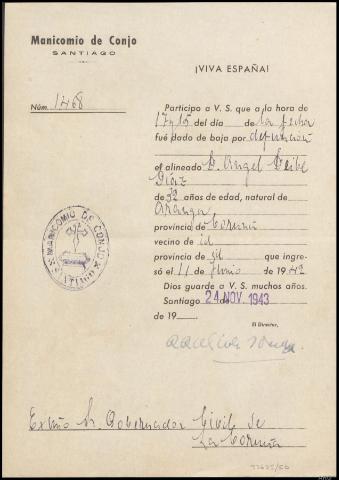 Manicomio de Conjo
SANTIAGO
¡VIVA ESPAÑA!
Núm. 1468
Participo a V. S. que a la hora de
17 y 15 del día de la fecha
fué dado de baja por defunción
el alineado D. Angel
Díaz
de 32 años de edad, natural de
Aranga,
provincia de Coruña
vecino de id
provincia de id que ingre-
só el 11 de de 194
Dios guarde a V. S. muchos años.
Santiago 24 NOV. 1943
de 19
El Director,
MANICOMIO DE CONJO
SANTIAGO
Exmo Sr. Gobernador Civil de
La Coruña